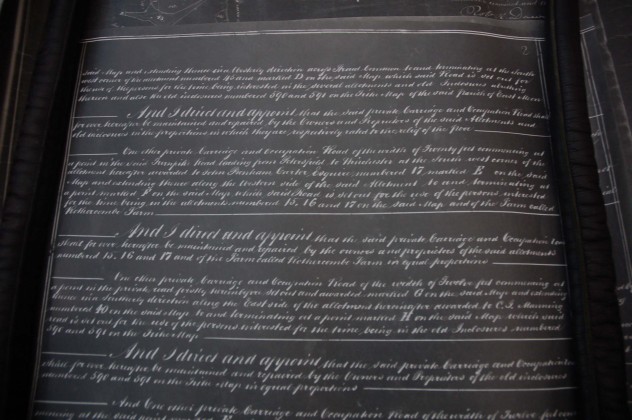 2
said Map and extending thence in a Westerly direction across Broad Common to and terminating at the South
west corner of the allotment numbered 40 and marked D on the said Map which said Road is set out for
the use of the persons for the time being interested in the several allotments and old Inclosures abutting
thereon and also the old inclosures numbered 390 and 391 on the Tithe Map of the said Parish of East Meon
And I direct and appoint that the said private Carriage and Occupation Road shall
for ever hereafter be maintained and repaired by the Owners and Proprietors of the said Allotments and
old inclosures in the proportions in which they are respectively rated to the relief of the Poor
One other private Carriage and Occupation Road of the width of Twenty feet commencing at
a point in the said Turnpike Road leading from Petersfield to Winchester at the South west corner of the
allotment hereafter awarded to John Bonham Carter Esquire numbered 17 marked E on the said
Map and extending thence along the Western side of the said Allotment to and terminating at
a point marked F on the said Map which said Road is set out for the use of the persons interested
for the time being in the allotments numbered 15, 16 and 17 on the said Map and of the Farm called
Farm
And I direct and appoint that the said private Carriage and Occupation
shall for ever hereafter be maintained and repaired by the owners and proprietors of the said allotments
numbered 15, 16 and 17 and of the Farm called Farm in equal proportions
One other private Carriage and Occupation Road of the width of Twelve feet commencing at
a point in the private road firstly hereinbefore set out and awarded marked G on the said Map and extending
thence in a Southerly direction along the East side of the allotment hereinafter awarded to C. J. Manning
numbered 40 on the said Map to and terminating at a point marked H on the said Map which said
road is set out for the use of the persons interested for the time being in the old Inclosures numbered
390 and 391 on the Tithe Map
And I direct and appoint that the said private Carriage and Occupation
shall for ever hereafter be maintained and repaired by the Owners and Proprietors of the old inclosures
numbered 390 and 391 on the Tithe Map in equal proportions
And One other private Carriage and Occupation Road of the width of Twelve feet